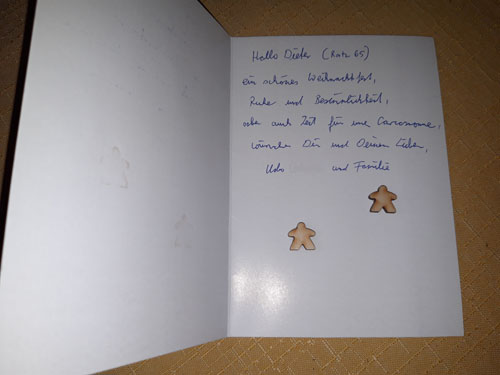 Hallo Dieter (Ratz 65)
ein schönes Weihnachtsfest,
Ruhe und Besinnlichkeit,
aber auch Zeit für eine Carcassonne,
wünschen Dir und Deinen Lieben,
Udo und Familie